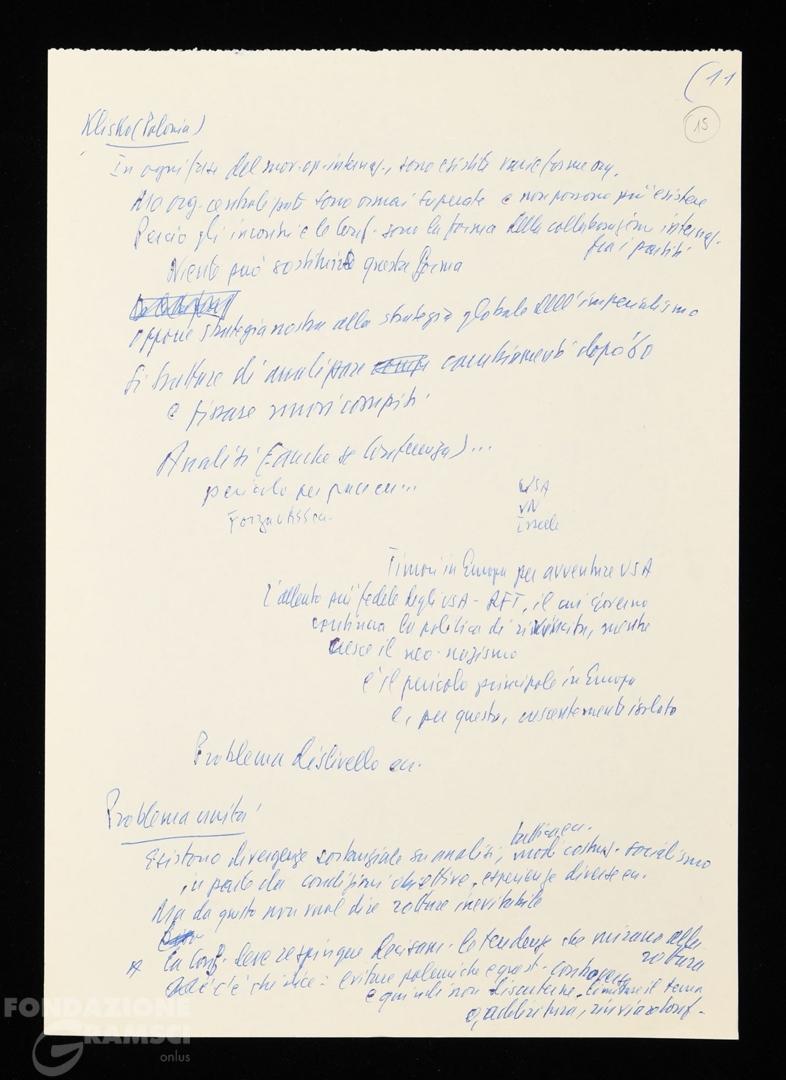 (11
15
Klisko (Polonia)
In ogni fase del mov. op. internaz., sono esistite varie forme org.
Ma org. centralizzate sono ormai superate e non possono più esistere
Perciò gli incontri e le Conf. sono la forma della collaborazione internaz.
fra i partiti
Niente può sostituire questa forma
opporre strategia nostra alla strategia globale dell'imperialismo
Si tratta di analizzare cambiamenti dopo '60
e fissare nuovi compiti
Analisi (anche se Conferenza)...
pericolo per pace ecc...
USA
VN
Israele
Forza
Timori in Europa per avventure USA
L'alleato più fedele degli USA - RFT, il cui governo
continua la politica di rivincita, mentre
cresce il neo-nazismo
è il pericolo principale in Europa
e, per questo, crescentemente isolato
Problema dislivello ecc.
Problema unità
tattica ecc.
Esistono divergenze sostanziali su analisi, modi costruz. socialismo
in parte da condizioni obiettive, esperienze diverse ecc.
Ma da questo non vuol dire rotture inevitabile
La Conf. deve respingere decisam. le tendenze che mirano alla
rottura
c'è chi dice: evitare polemiche e quest. controverse
e quindi non discuterne. Limitare il tema
o, addirittura, rinviare Conf.
FONDAZIONE
GRAMSCI
onlus